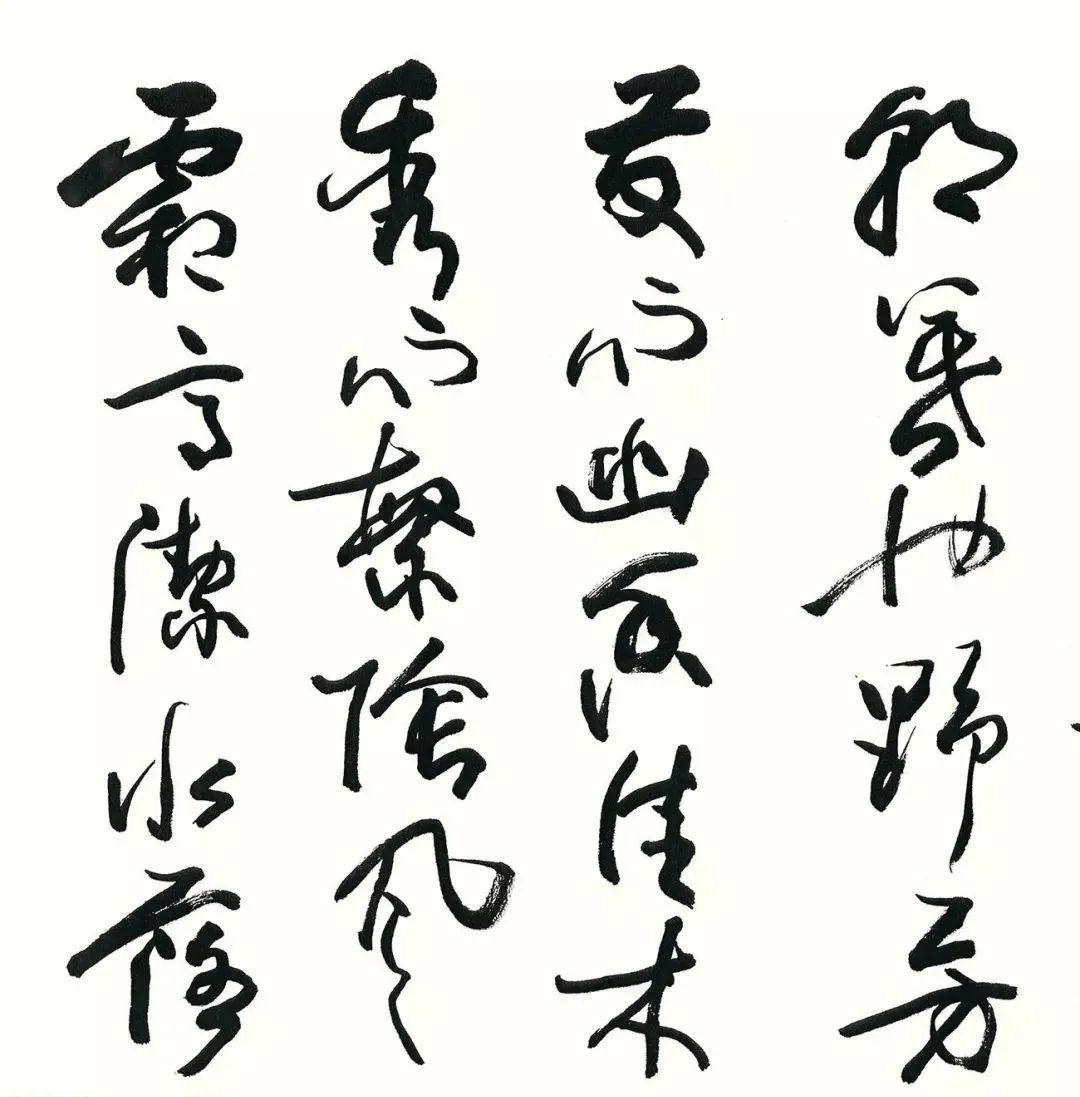 朝暮也野芳
發而幽香佳木
秀而繁陰風
霜高潔水落